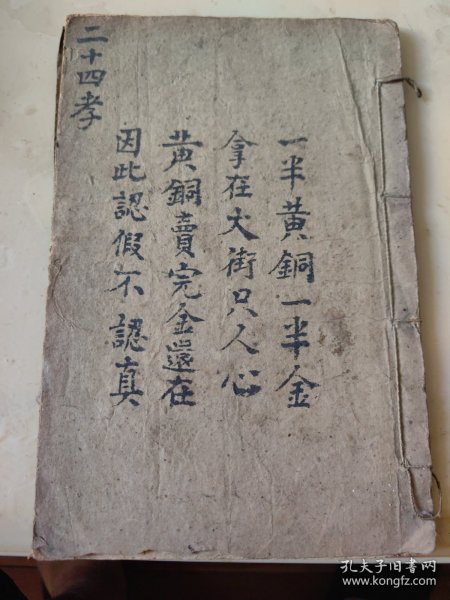 一半黄銅一半金
拿在大街只人心
黄銅賣完金還在
因此認假不認真
二十四孝
孔夫子旧书网
www.kongfz.com